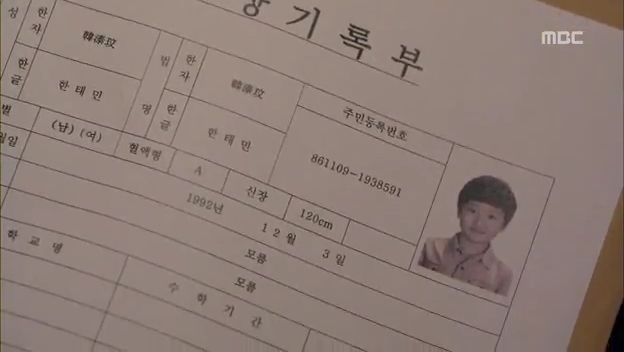 MBC
장 기 록 부
성 한자 韓漆玟 법명 한자 韓漆玟 주민등록번호
한글 한 태 민 한글 한 태 민 861109-1938591
별 (남) (여) 혈액형 A 신장 120cm
월일 1992년 1 2 월 3 일
모름
학 교 명 모름
수 학 기 간